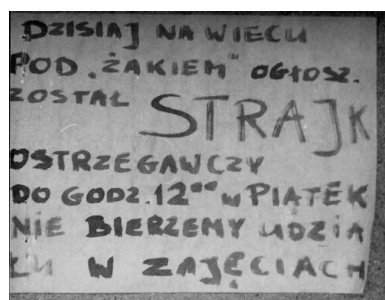 DZISIAJ NA WIECU
POD „ŻAKIEM” OGŁOSZ.
ZOSTAŁ STRAJK
OSTRZEGAWCZY
DO GODZ. 12⁰⁰ W PIĄTEK
NIE BIERZEMY UDZIA
ŁU W ZAJĘCIACH